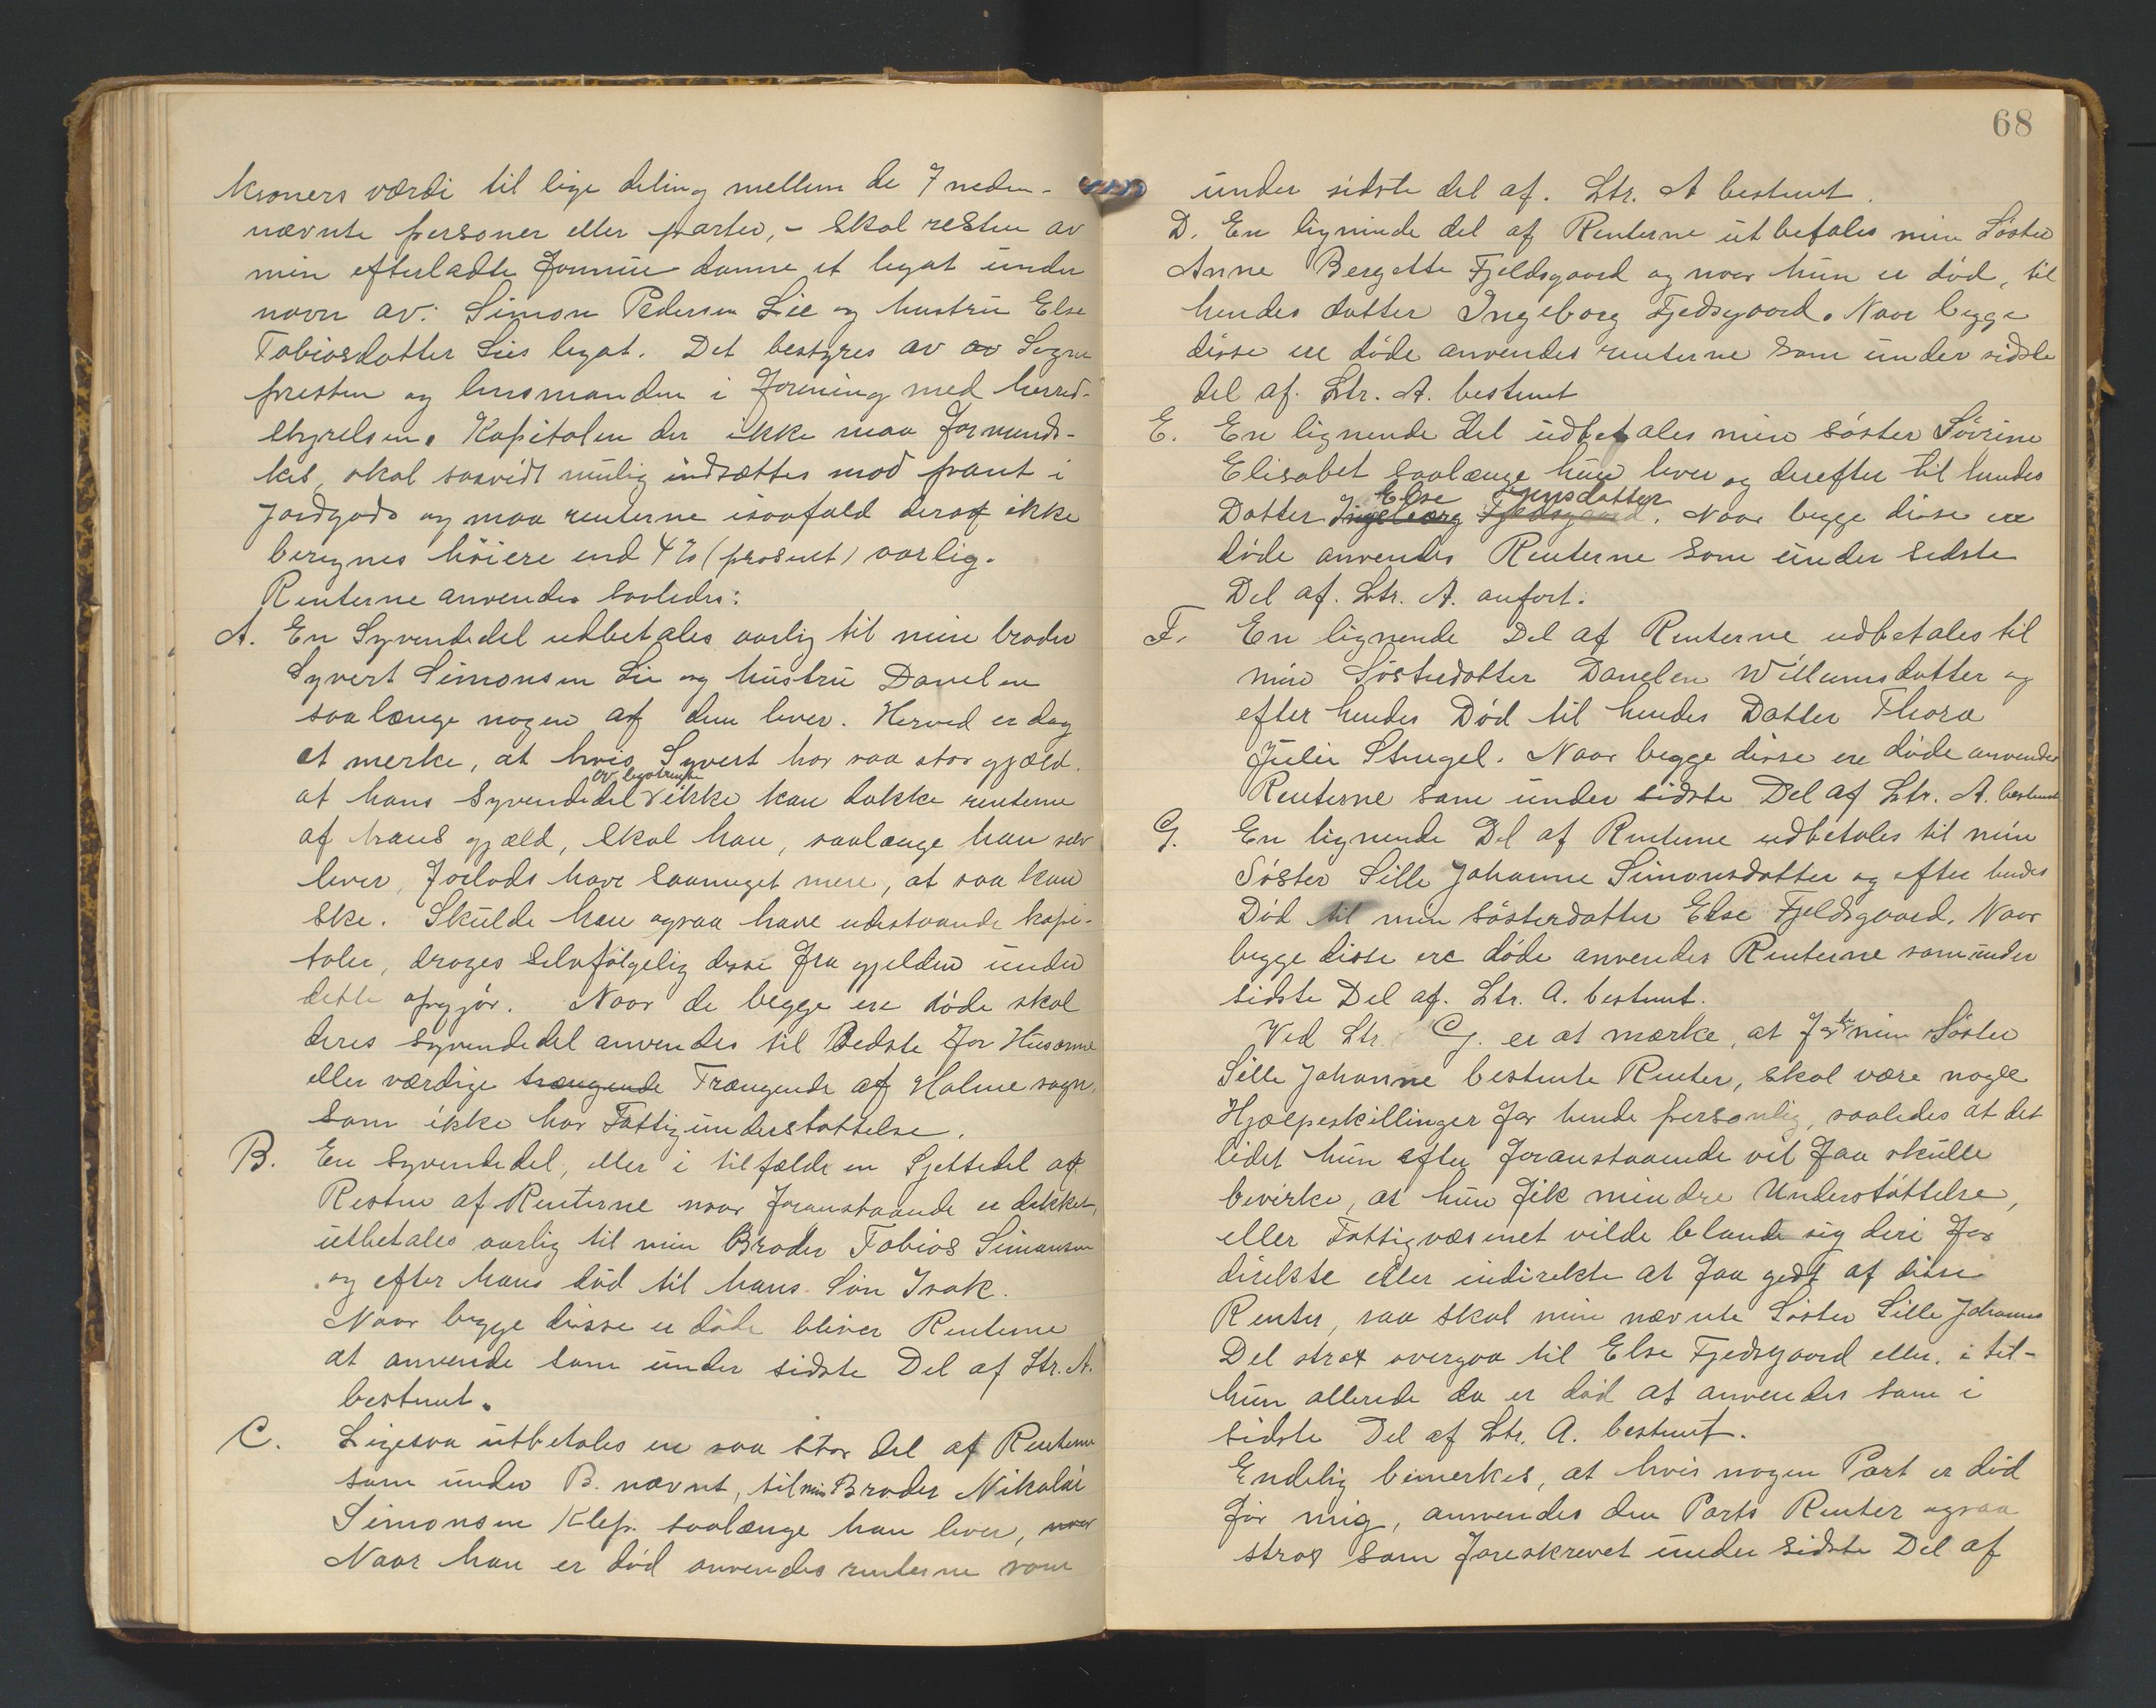 kroners værdi til lige deling mellem de 7 neden-
nævnte personer eller parter, - skal resten av
min efterladte formue danne et legat under
navn av: Simon Pedersen Lie og hustru Else
Tobiasdatter Lies legat. Det bestyres av av Sogne
presten og lensmanden i forening med herred-
styrelsen. Kapitalen der ikke maa forminds-
kes, skal saavidt mulig indsættes mod pant i
Jordgods og maa renterne isaafald deraf ikke
beregnes höiere end 4 % (prosent) aarlig.
Renterne anvendes saaledes:
A. En Syvendedel udbetales aarlig til min broder
Syvert Simonsen Lie og hustru Danelen
saa længe nogen af dem lever. Herved er dog
at merke, at hvis Syvert har saa stor gjæld.
av legatrenten
at hans syvendedel ikke kan dække renterne
af hans gjæld, skal han, saalænge han selv
lever, forlods have saameget mere, at saa kan
ske. Skulde han ogsaa have udestaaende kapi-
taler, drages selvfölgelig disse fra gjelden under
dette opgjör. Naar de begge ere döde skal
deres syvendedel anvendes til Bedste for Husarme
eller værdige trængende Trængende af Holme sogn,
som ikke har Fattigunderstøttelse.
B. En syvendedel, eller i tilfælde en Sjettedel af
Resten af Renterne naar foranstaaende er dekket,
utbetales aarlig til min Broder Tobias Simonsen
og efter hans död til hans Sön Isak.
Naar begge disse er döde bliver Renterne
at anvende som under sidste Del af Ltr. A.
bestemt.
C. Ligesaa utbetales en saa stor del af Renterne
som under B. nævnt, til min Broder Nikolai
Simonsen Klep. saalænge han lever, naar
Naar han er död anvendes renterne som
68
under sidste del af. Ltr. A bestemt.
D. En lignende del af Renterne utbetales min Söster
Anne Bergette Fjeldsgaard og naar hun er död, til
hendes datter Ingeborg Fjedsgaard. Naar begge
disse ere döde anvendes renterne som under sidste
del af. Ltr. A. bestemt
E. En lignende del udbetales min söster Sörine
Elisabet saalænge hun lever og derefter til hendes
Else Jensdatter
Datter Ingeborg Fjedsgaard. Naar begge disse ere
döde anvendes Renterne som under sidste
Del af. Ltr. A. anfört.
F. En lignende Del af Renterne udbetales til
min Søsterdatter Danelen Willumsdatter og
efter hendes Död til hendes Datter Thora
Julie Stuegel. Naar begge disse ere döde anvendes
Renterne som under sidste Del af Ltr. A. bestemt
G. En lignende Del af Renterne udbetales til min
Søster Sille Johanne Simonsdatter og efter hendes
Død til min søsterdatter Else Fjeldsgaard. Naar
begge disse ere döde anvendes Renterne som under
sidste Del af. Ltr. A. bestemt.
Ved Ltr. G. er at mærke, at de for min Söster
Sille Johanne bestemte Renter, skal være nogle
Hjælpeskillinger for hende personlig, saaledes at det
lidet hun efter foranstaaende vil faa skulle
bevirke, at hun fik mindre Understöttelse,
eller Fattigvæsenet vilde blande sig deri for
direkte eller indirekte at faa godt af disse
Renter, saa skal min nævnte Söster Sille Johannes
Del strax overgaa til Else Fjedsgaard eller, i til-
hun allerede da er död at anvendes som i
sidste Del af Ltr. A. bestemt.
Endelig bemerkes, at hvis nogen Part er död
för mig, anvendes den Parts Renter ogsaa
strax som foreskrevet under sidste Del af